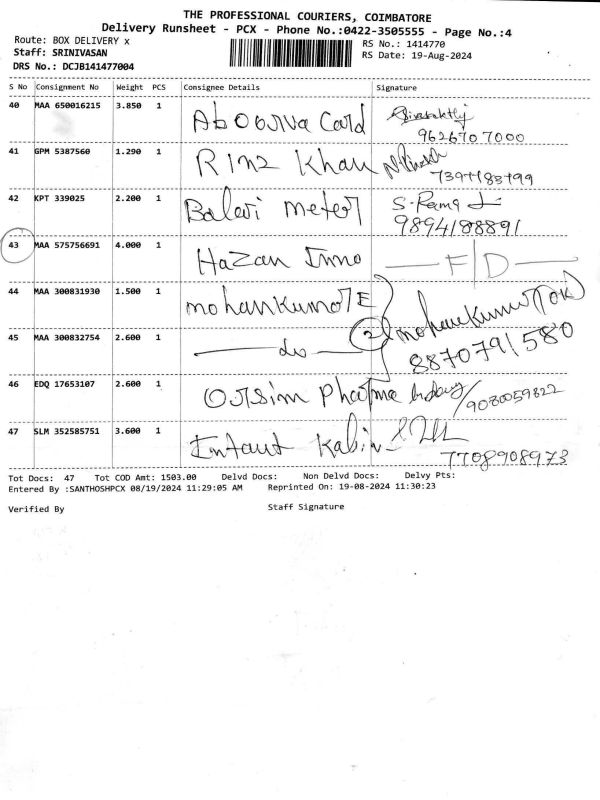 THE PROFESSIONAL COURIERS, COIMBATORE
Delivery Runsheet - PCX - Phone No.:0422-3505555 - Page No.:4
Route: BOX DELIVERY x
RS No.: 1414770
Staff: SRINIVASAN
RS Date: 19-Aug-2024
DRS No.: DCJB141477004
S No Consignment No Weight PCS Consignee Details Signature
40 MAA 650016215 3.850 1 Aboorva Card
9626707000
41 GPM 5387560 1.290 1 Rinz Khan
42 KPT 339025 2.200 1 Balaji meter S. Rama
9894188891
43 MAA 575756691 4.000 1 Hazan Inno F/D
44 MAA 300831930 1.500 1 mohankumar E
2 mohankumar (OK)
45 MAA 300832754 2.600 1 do
8870791580
46 EDQ 17653107 2.600 1 Pharma
9080059822
47 SLM 352585751 3.600 1 Kabi
7708908973
Tot Docs: 47 Tot COD Amt: 1503.00 Delvd Docs: Non Delvd Docs: Delvy Pts:
Entered By :SANTHOSHPCX 08/19/2024 11:29:05 AM Reprinted On: 19-08-2024 11:30:23
Verified By Staff Signature